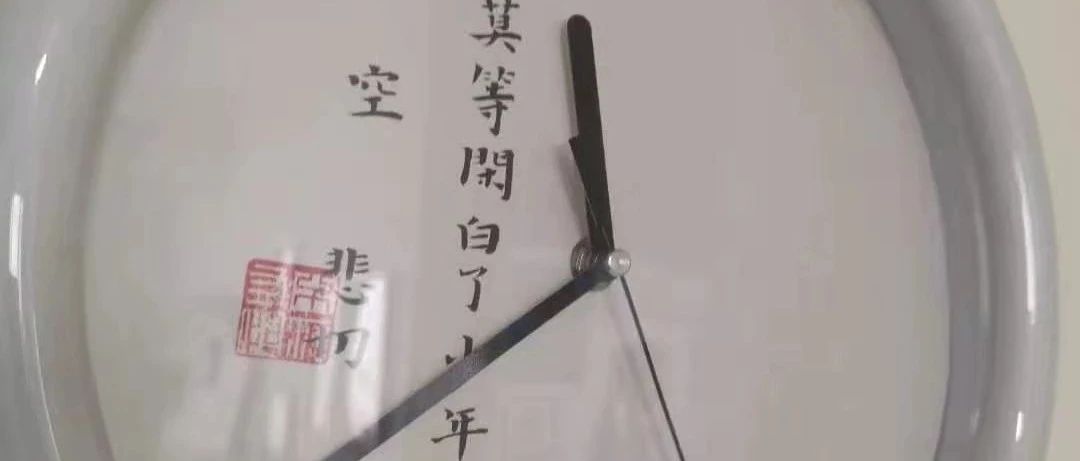 莫等閑白了少年
空悲切